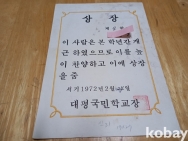 상 장
이 사람은 본 학년간 개
근 하였으므로 이를 높
이 찬양하고 이에 상장
을 줌
서기 1972년 2월
대평국민학교장
kobay